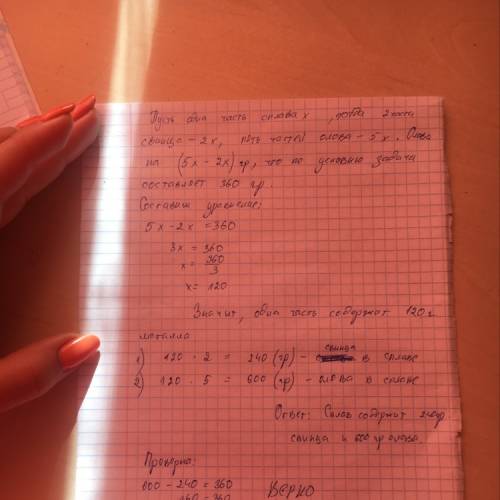 Пусть одна часть сплава x, тогда 2 части
свинца – 2x, пять частей олова – 5x. Олова
на (5x – 2x) гр, что по условию задачи
составляет 360 гр.
Составим уравнение:
5x – 2x = 360
3x = 360
x = 360/3
x = 120
Значит, одна часть содержит 120 г.
металла
1) 120 · 2 = 240 (гр) – свинца в сплаве
2) 120 · 5 = 600 (гр) – олова в сплаве
Ответ: Сплав содержит 240гр
свинца и 600 гр олова.
Проверка:
600 – 240 = 360
360 = 360 ВЕРНО